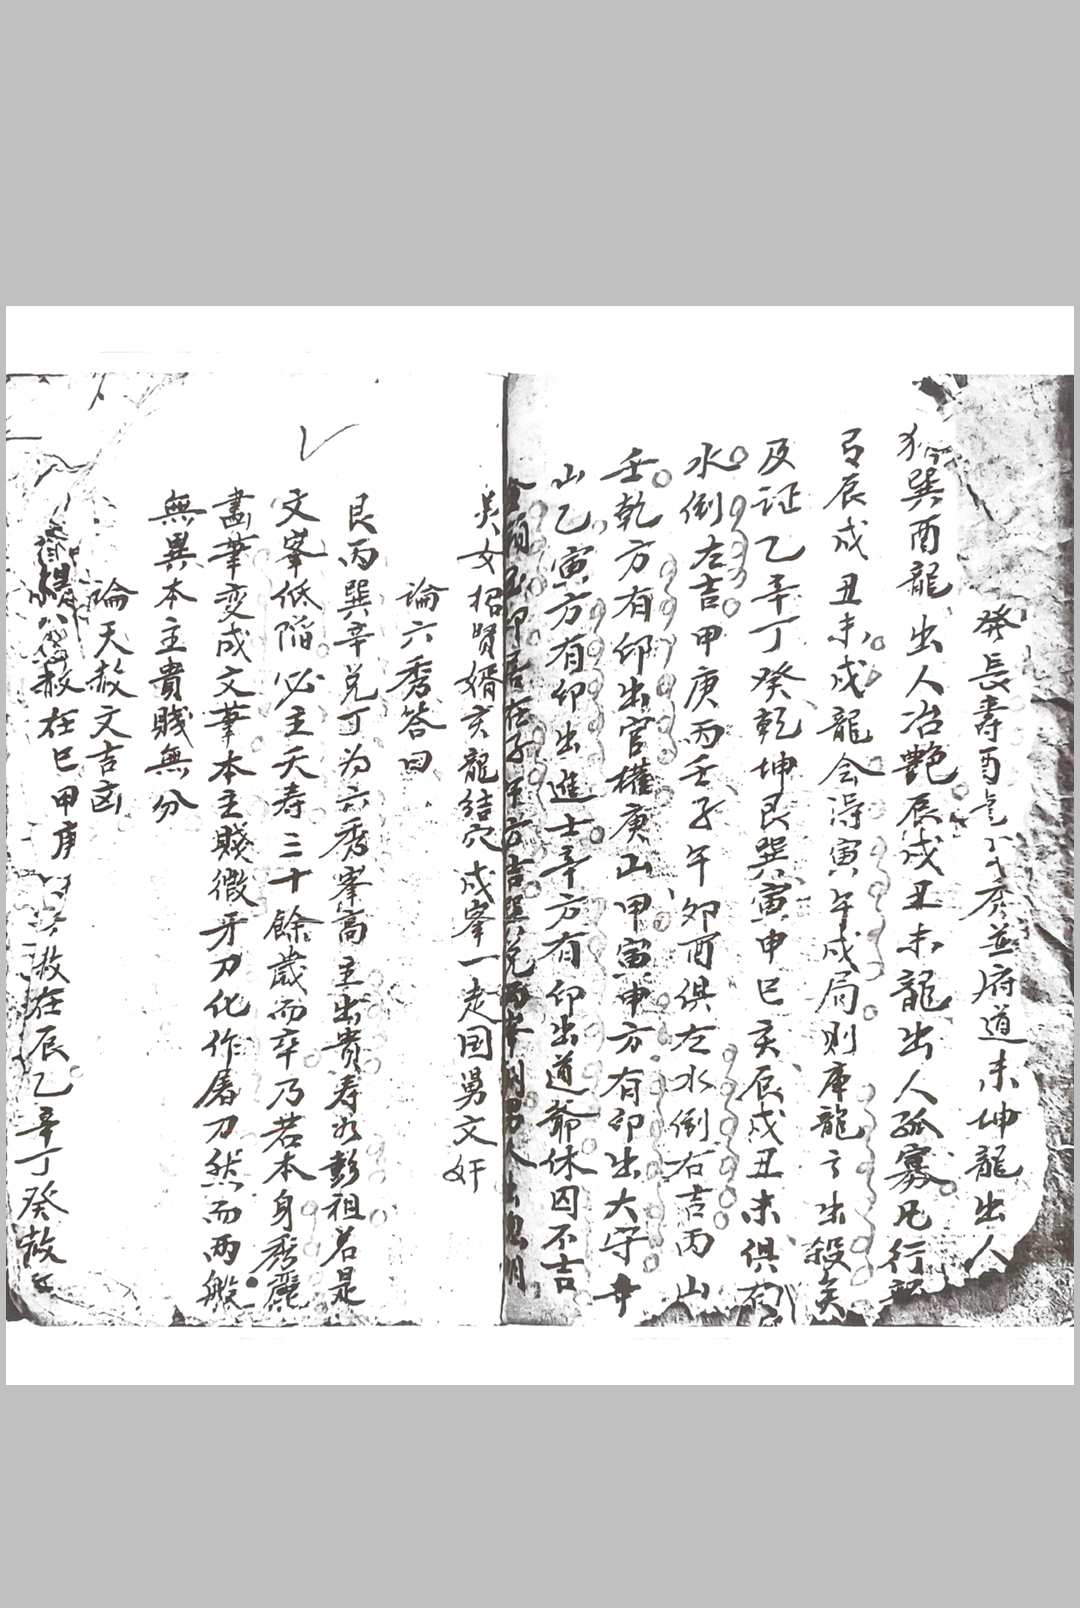 癸長壽酉 彥並府道未坤龍出人
巽酉龍出人冶艷辰戌丑未龍出人孤寡凡行
辰戌丑未戌龍会得寅午戌局則庫龍方出殺矣
及証乙辛丁癸乾坤艮巽寅申巳亥辰戌丑未俱
水倒左吉甲庚丙壬子午卯酉俱左水倒右吉丙山
壬乾方有卯出官權庚山甲寅申方有卯出大守
山乙寅方有卯出進士辛方有卯出道爺休囚不吉
在子午方吉巽兌丙 男人出
吳女招賢婿亥龍結穴成峯一走国舅文奸
論六秀答曰
艮丙巽辛兌丁为六秀峯高主出貴寿如彭祖若是
文峯低陷必主夭寿三十餘歲而卒乃若本身秀麗
畵筆变成文筆本主賤微牙刀化作屠刀然而兩般
無異本主貴賤無分
論天赦文吉凶
赦在巳甲庚 赦在辰乙辛丁癸赦